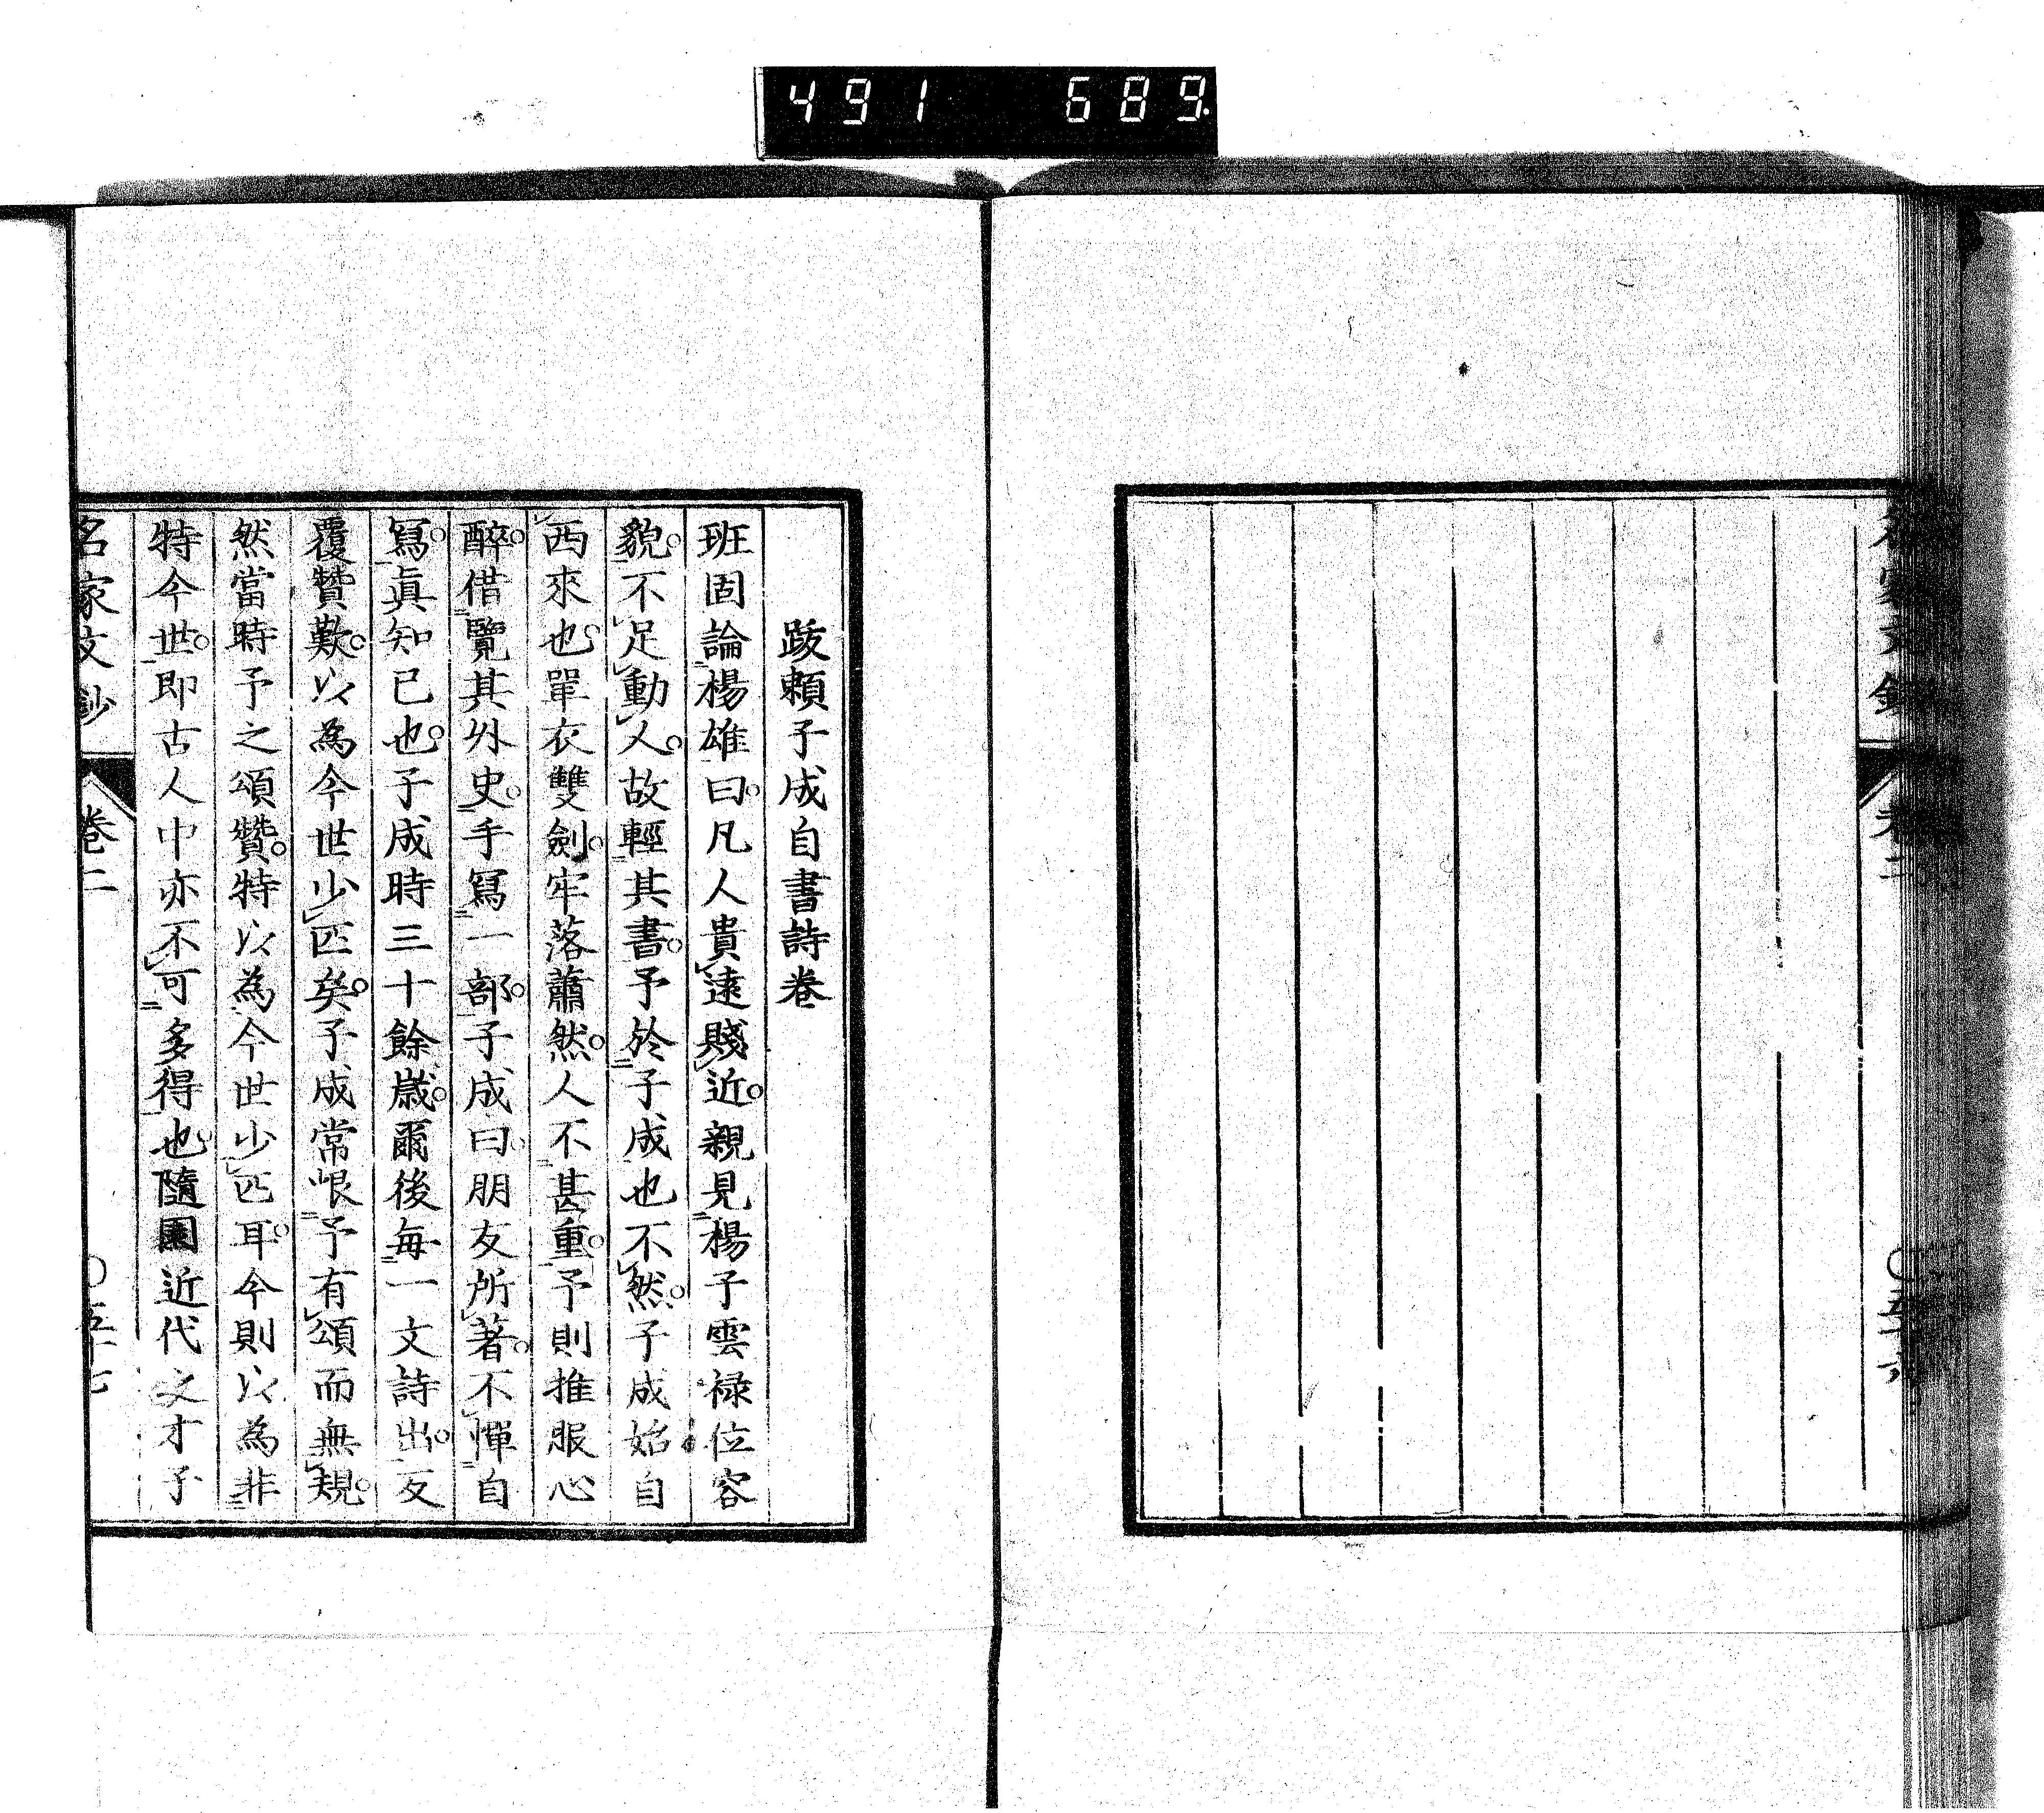 491 689
跋頼子成自書詩卷
班固論楊雄曰凡人貴遠賤近親見楊子雲禄位容
貌不足動人故輕其書予於子成也不然子成始自
西來也單衣雙劍牢落蕭然人不甚重予則推服心
醉借覽其外史手寫一部子成曰朋友所著不憚自
寫眞知己也子成時三十餘歳爾後毎一文詩出反
覆賛歎以為今世少匹矣子成常恨予有頌而無規
然當時予之頌賛特以為今世少匹耳今則以為非
特今世即古人中亦不可多得也隨園近代文才子
名家文鈔 卷二 〇五十七